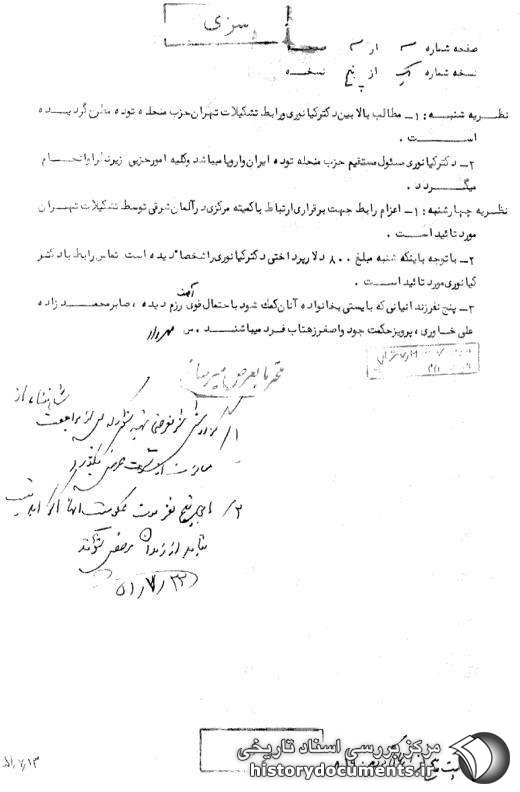 سری
صفحه شماره ۳ از ۳ صفحه
نسخه شماره یک از پنج نسخه
نظریه شنبه : ۱ـ مطالب بالا بین دکتر کیانوری و رابط تشکیلات تهران حزب منحله توده عنوان گردیده
است .
۲ـ دکتر کیانوری مسئول مستقیم حزب منحله توده ایران و اروپا میباشد و کلیه امور حزبی زیر نظر او انجام
میگردد .
نظریه چهارشنبه : ۱ـ اعزام رابط جهت برقراری ارتباط با کمیته مرکزی در آلمان شرقی توسط تشکیلات تهران
مورد تائید است .
۲ـ با توجه باینکه شنبه مبلغ ۸۰۰ دلار پرداختی دکتر کیانوری را شخصا" دیده است تماس رابط با دکتر
کیانوری مورد تائید است .
۳ـ پنج نفر زندانیانی که بایستی بخانواده آنان کمک شود با احتمال قوی رزم دیده ، صابر محمدزاده
علی خاوری ، پرویز حکمت جو و اصغر زهتاب فرد میباشند . س
مهرداد
۱/ گزارش
۲/ این پنج نفر
نباید از زندان مرخص شوند
۵۱/۷/۲۳
۵۱/۷/۱۳
مرکز بررسی اسناد تاریخی
historydocuments.ir